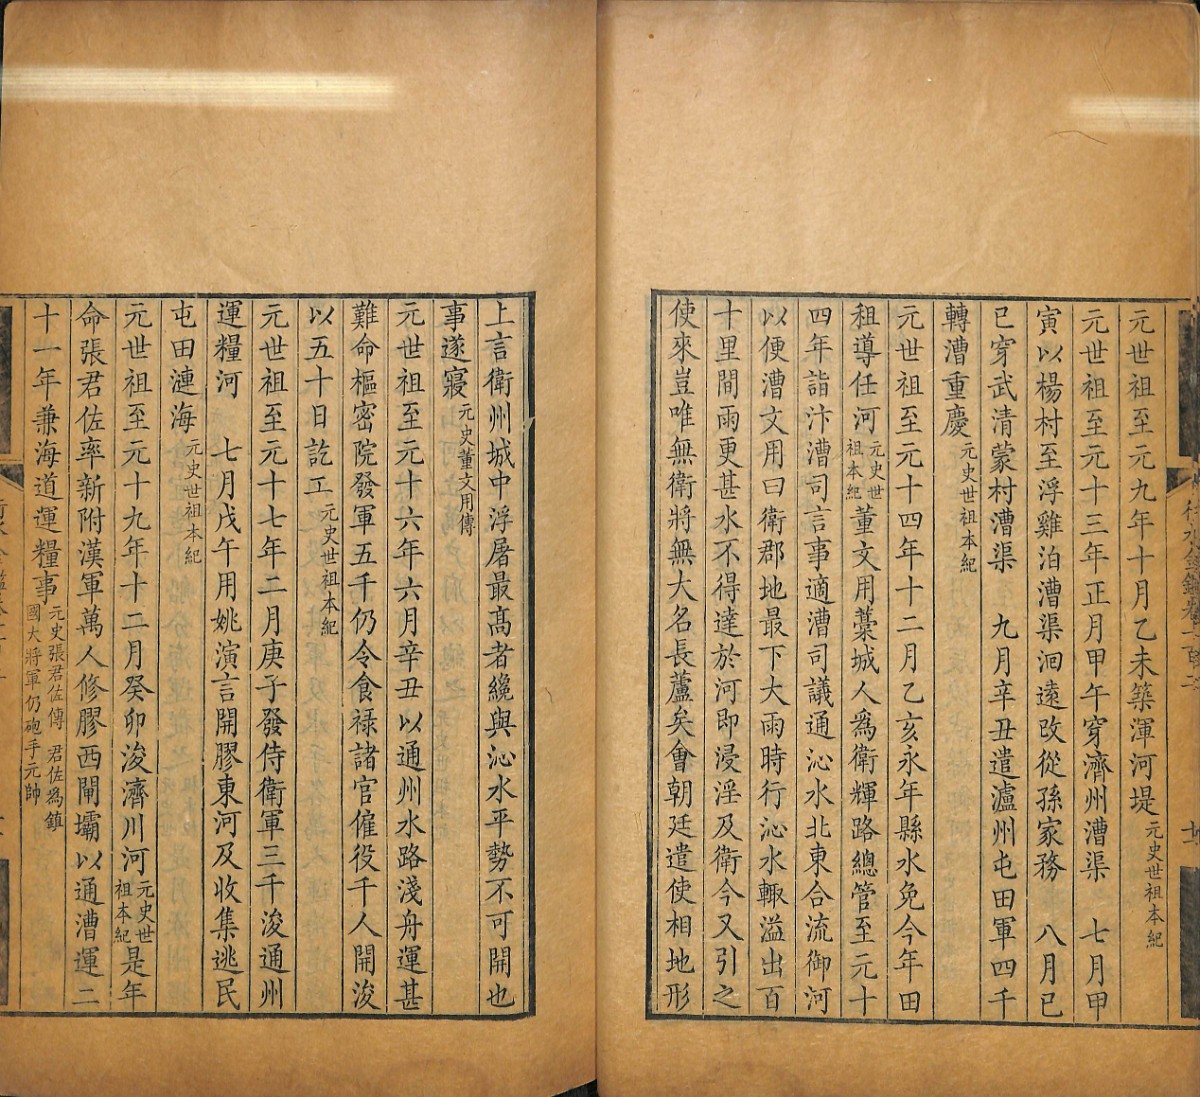 元世祖至元九年十月乙未築渾河堤元史世祖本紀
元世祖至元十三年正月甲午穿濟州漕渠　七月甲
寅以楊村至浮雞泊漕渠洄遠改從孫家務　八月己
巳穿武清蒙村漕渠　九月辛丑遣瀘州屯田軍四千
轉漕重慶元史世祖本紀
元世祖至元十四年十二月乙亥永年縣水免今年田
租導任河元史世祖本紀董文用藁城人爲衛輝路總管至元十
四年詣汴漕司言事適漕司議通沁水北東合流御河
以便漕文用曰衛郡地最下大雨時行沁水輒溢出百
十里間雨更甚水不得達於河即浸淫及衛今又引之
使來豈唯無衛將無大名長蘆矣會朝廷遣使相地形
上言衛州城中浮屠最高者纔與沁水平勢不可開也
事遂寢元史董文用傳
元世祖至元十六年六月辛丑以通州水路淺舟運甚
難命樞密院發軍五千仍令食祿諸官僱役千人開浚
以五十日訖工元史世祖本紀
元世祖至元十七年二月庚子發侍衛軍三千浚通州
運糧河　七月戊午用姚演言開膠東河及收集逃民
屯田漣海元史世祖本紀
元世祖至元十九年十二月癸卯浚濟川河元史世祖本紀是年
命張君佐率新附漢軍萬人修膠西閘壩以通漕運二
十一年兼海道運糧事元史張君佐傳　君佐為鎮國大將軍仍砲手元帥